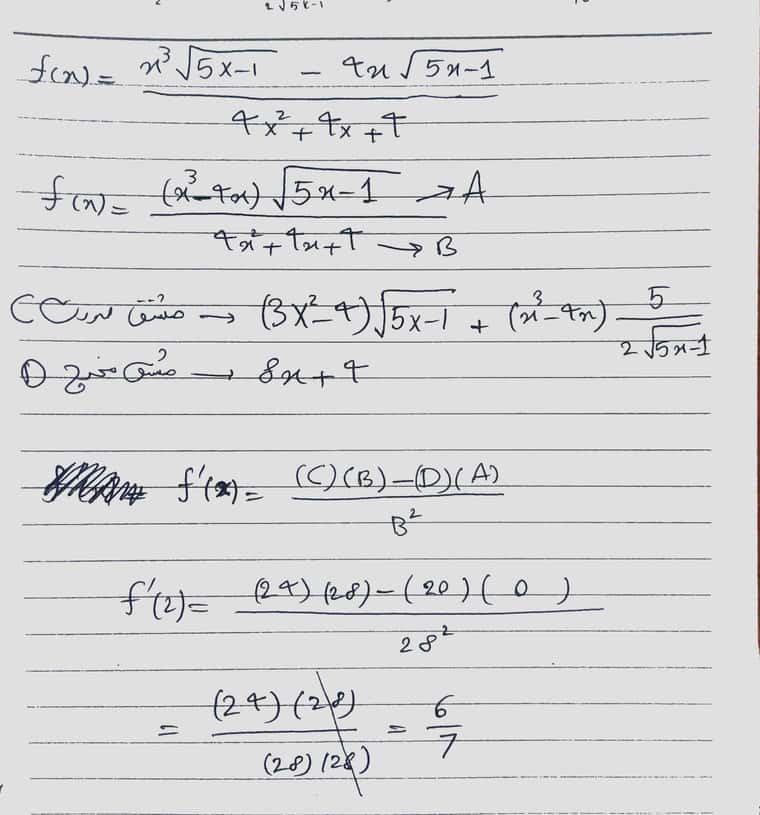 2√5x-1
f(x) = (x³√5x-1 - 4x√5x-1) / (4x²+4x+4)
f(x) = ((x³-4x)√5x-1 → A) / (4x²+4x+4 → B)
C مشتق صورت → (3x²-4)√5x-1 + (x³-4x) 5/(2√5x-1)
D مشتق مخرج → 8x+4
f'(x) = ((C)(B)-(D)(A)) / B²
f'(2) = ((24)(28)-(20)(0)) / 28²
= (24)(28) / (28)(28) = 6/7